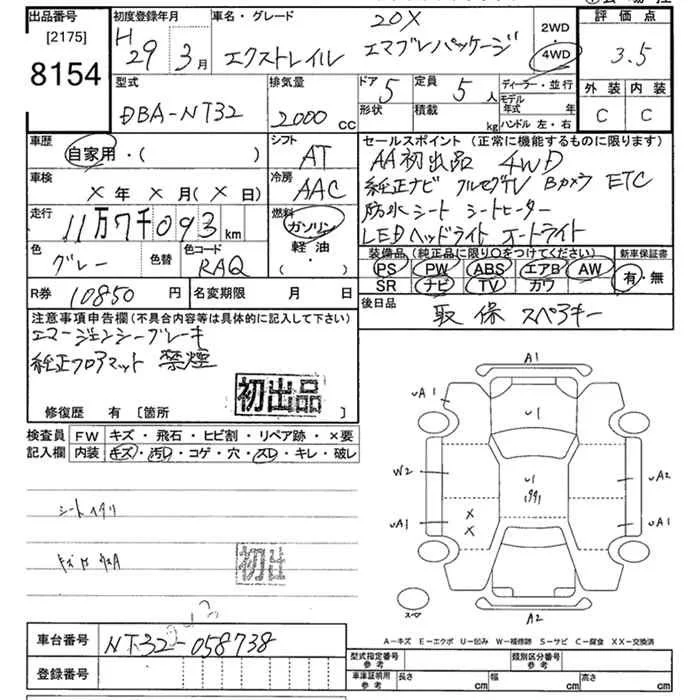 出品番号
[2175]
8154
初度登録年月
H 29年 3月
車名・グレード
20X
エクストレイル エマブレパッケージ
2WD
4WD
評価点
3.5
型式
DBA-NT32
排気量
2000 cc
ドア 5
形状
定員 5人
積載 kg
ディーラー・並行
モデル年式 年
ハンドル 左・右
外装 内装
C C
車歴
自家用・( )
シフト
AT
セールスポイント(正常に機能するものに限ります)
AA初出品 4WD
純正ナビ フルセグTV Bカメラ ETC
防水シート シートヒーター
LEDヘッドライト オートライト
車検
×年×月(×日)
冷房
AAC
走行
11万7千093km
燃料
ガソリン
軽油
・( )
色
グレー
色替
色コード
RAQ
装備品(純正品に限り○をつけてください)
PS PW ABS エアB AW
SR ナビ TV カワ
新車保証書
有・無
R券 10850円
名変期限 月 日
後日品
取 保 スペアキー
注意事項申告欄(不具合内容等は具体的に記入して下さい)
エマージェンシーブレーキ
純正フロアマット 禁煙
初出品
修復歴 有 [箇所 ]
検査員記入欄
FW キズ・飛石・ヒビ割・リペア跡・×要
内装 キズ・汚D・コゲ・穴・スD・キレ・破レ
シートヘタリ
初出
A1
uA1
u1
W2
u1
uA2
uA1
×
×
uA1
スペア
A2
A-キズ E-エクボ U-凹み W-補修跡 S-サビ C-腐食 XX-交換済
車台番号
NT32-058738
登録番号
型式指定番号
参考
類別区分番号
参考
車庫証明用
参考
長さ cm
幅 cm
高さ cm